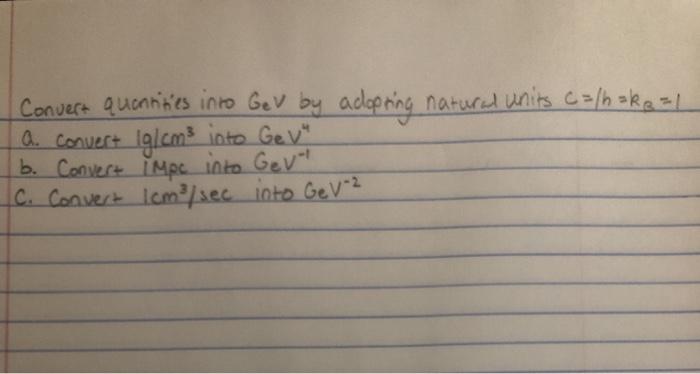 Convert quantities into GeV by adopting natural units c=ħ=k_B=1
a. convert 1g/cm³ into GeV⁴
b. Convert 1Mpc into GeV⁻¹
C. Convert 1cm³/sec into GeV⁻²